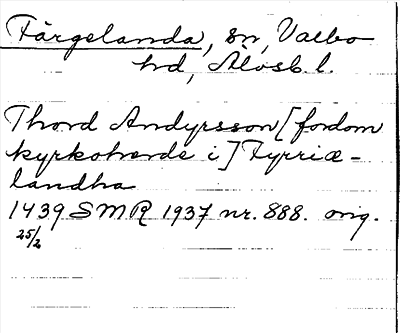 Färgelanda, sn, Valbo
hd, Älvsb. l.
Thord Andyrsson [fordom
kyrkoherde i] Fyrriæ-
landha
1439 SMR 1937 nr. 888. orig.
25/2